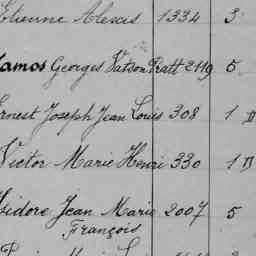 Etienne Alexis 1334 3
Ramos Georges Vatson Pratt 2119 5
Ernest Joseph Jean Louis 308 1 D
Victor Marie Henri 330 1 D
Isidore Jean Marie 2007 5
François